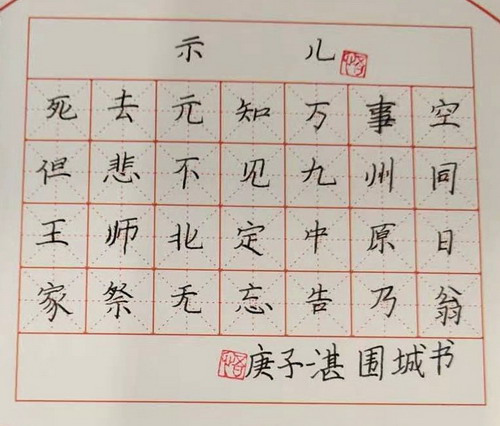 示儿
死去元知万事空
但悲不见九州同
王师北定中原日
家祭无忘告乃翁
庚子湛围城书